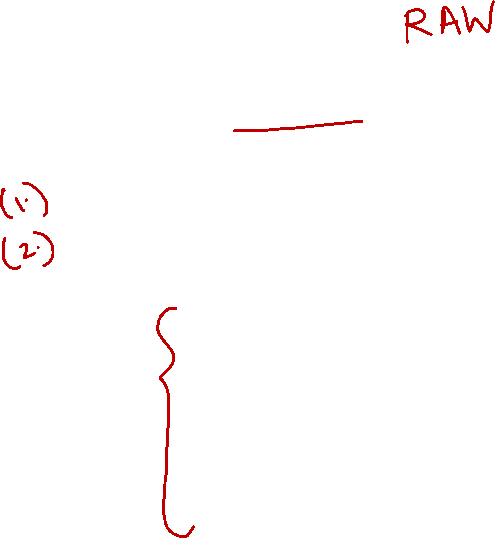 RAW
(1.)
(2.)